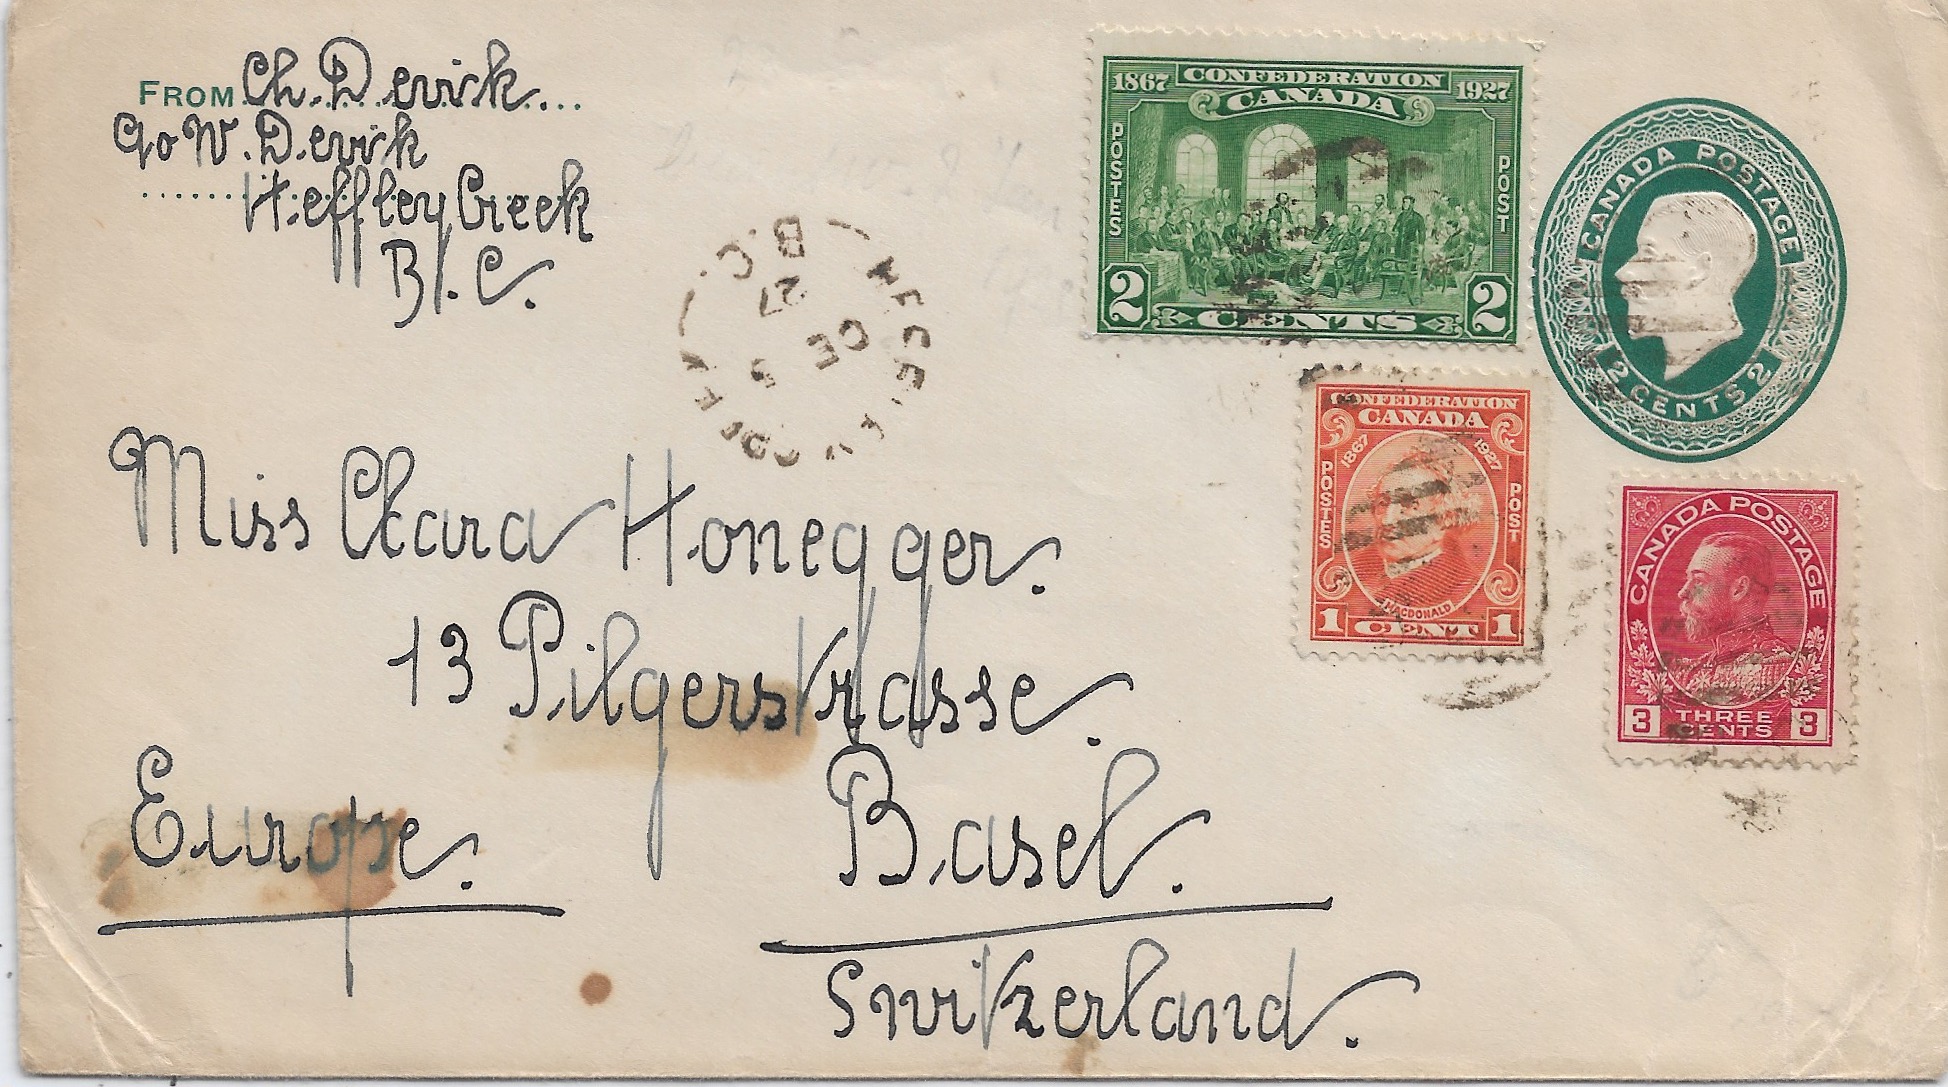 FROM Ch. Derrik
c/o W. Derrik
Heffley Creek
B.C.
1867 CONFEDERATION 1927
CANADA
POSTES POST
2 CENTS 2
CANADA POSTAGE
2 CENTS 2
B.C.
27
DE
5
CONFEDERATION
CANADA
1867 1927
POSTES POST
MACDONALD
1 CENT 1
CANADA POSTAGE
3 THREE CENTS 3
Miss Clara Honegger.
13 Pilgerstrasse.
Europe. Basel.
Switzerland.